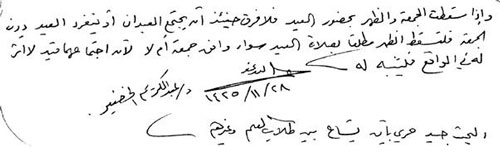 وإذا سقطت الجمعة والظهر بحضور العيد فلا فرق حينئذ أن يجتمع العيدان أو ينفرد العيد دون
الجمعة فلتسقط الظهر مطلقا بصلاة العيد سواء وافق جمعة أم لا لأن اجتماعهما قيد لا أثر
له في الواقع فليتنبه له
د/عبدالكريم الخضير
١٤٢٥/١١/٢٨
البحث جيد حري بأن يشاع بين طلاب العلم وغيرهم